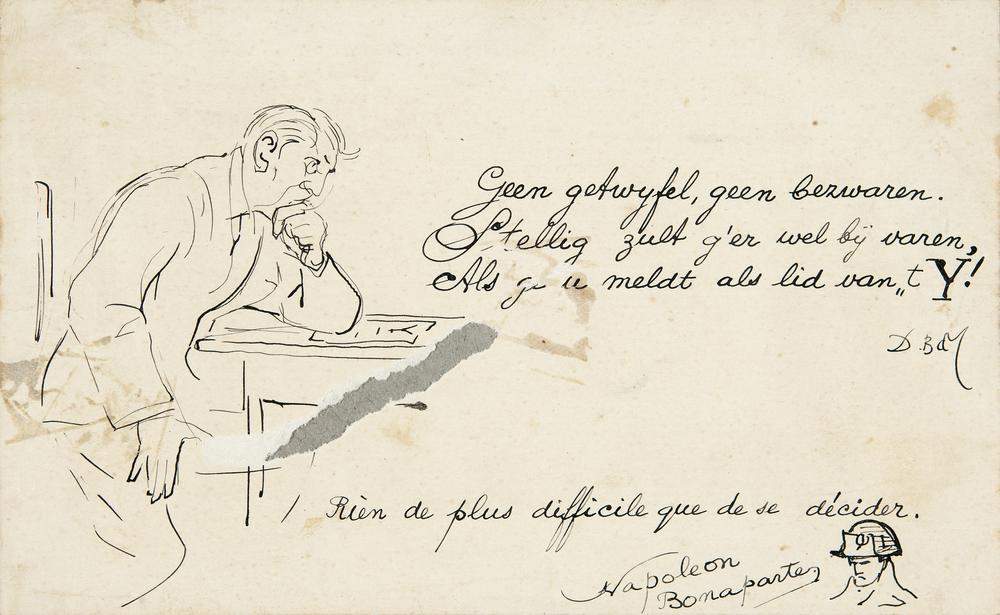 Geen getwyfel, geen bezwaren.
Stellig zult g'er wel bij varen,
Als ge u meldt als lid van „t Y!
D.B.d.M
Rièn de plus difficile que de se décider.
Napoleon
Bonaparte